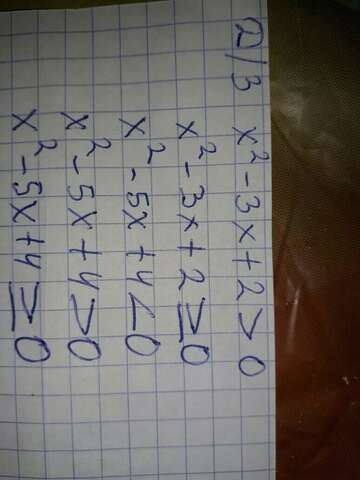 Д/З x² - 3x + 2 > 0
x² - 3x + 2 ≥ 0
x² - 5x + 4 < 0
x² - 5x + 4 > 0
x² - 5x + 4 ≥ 0